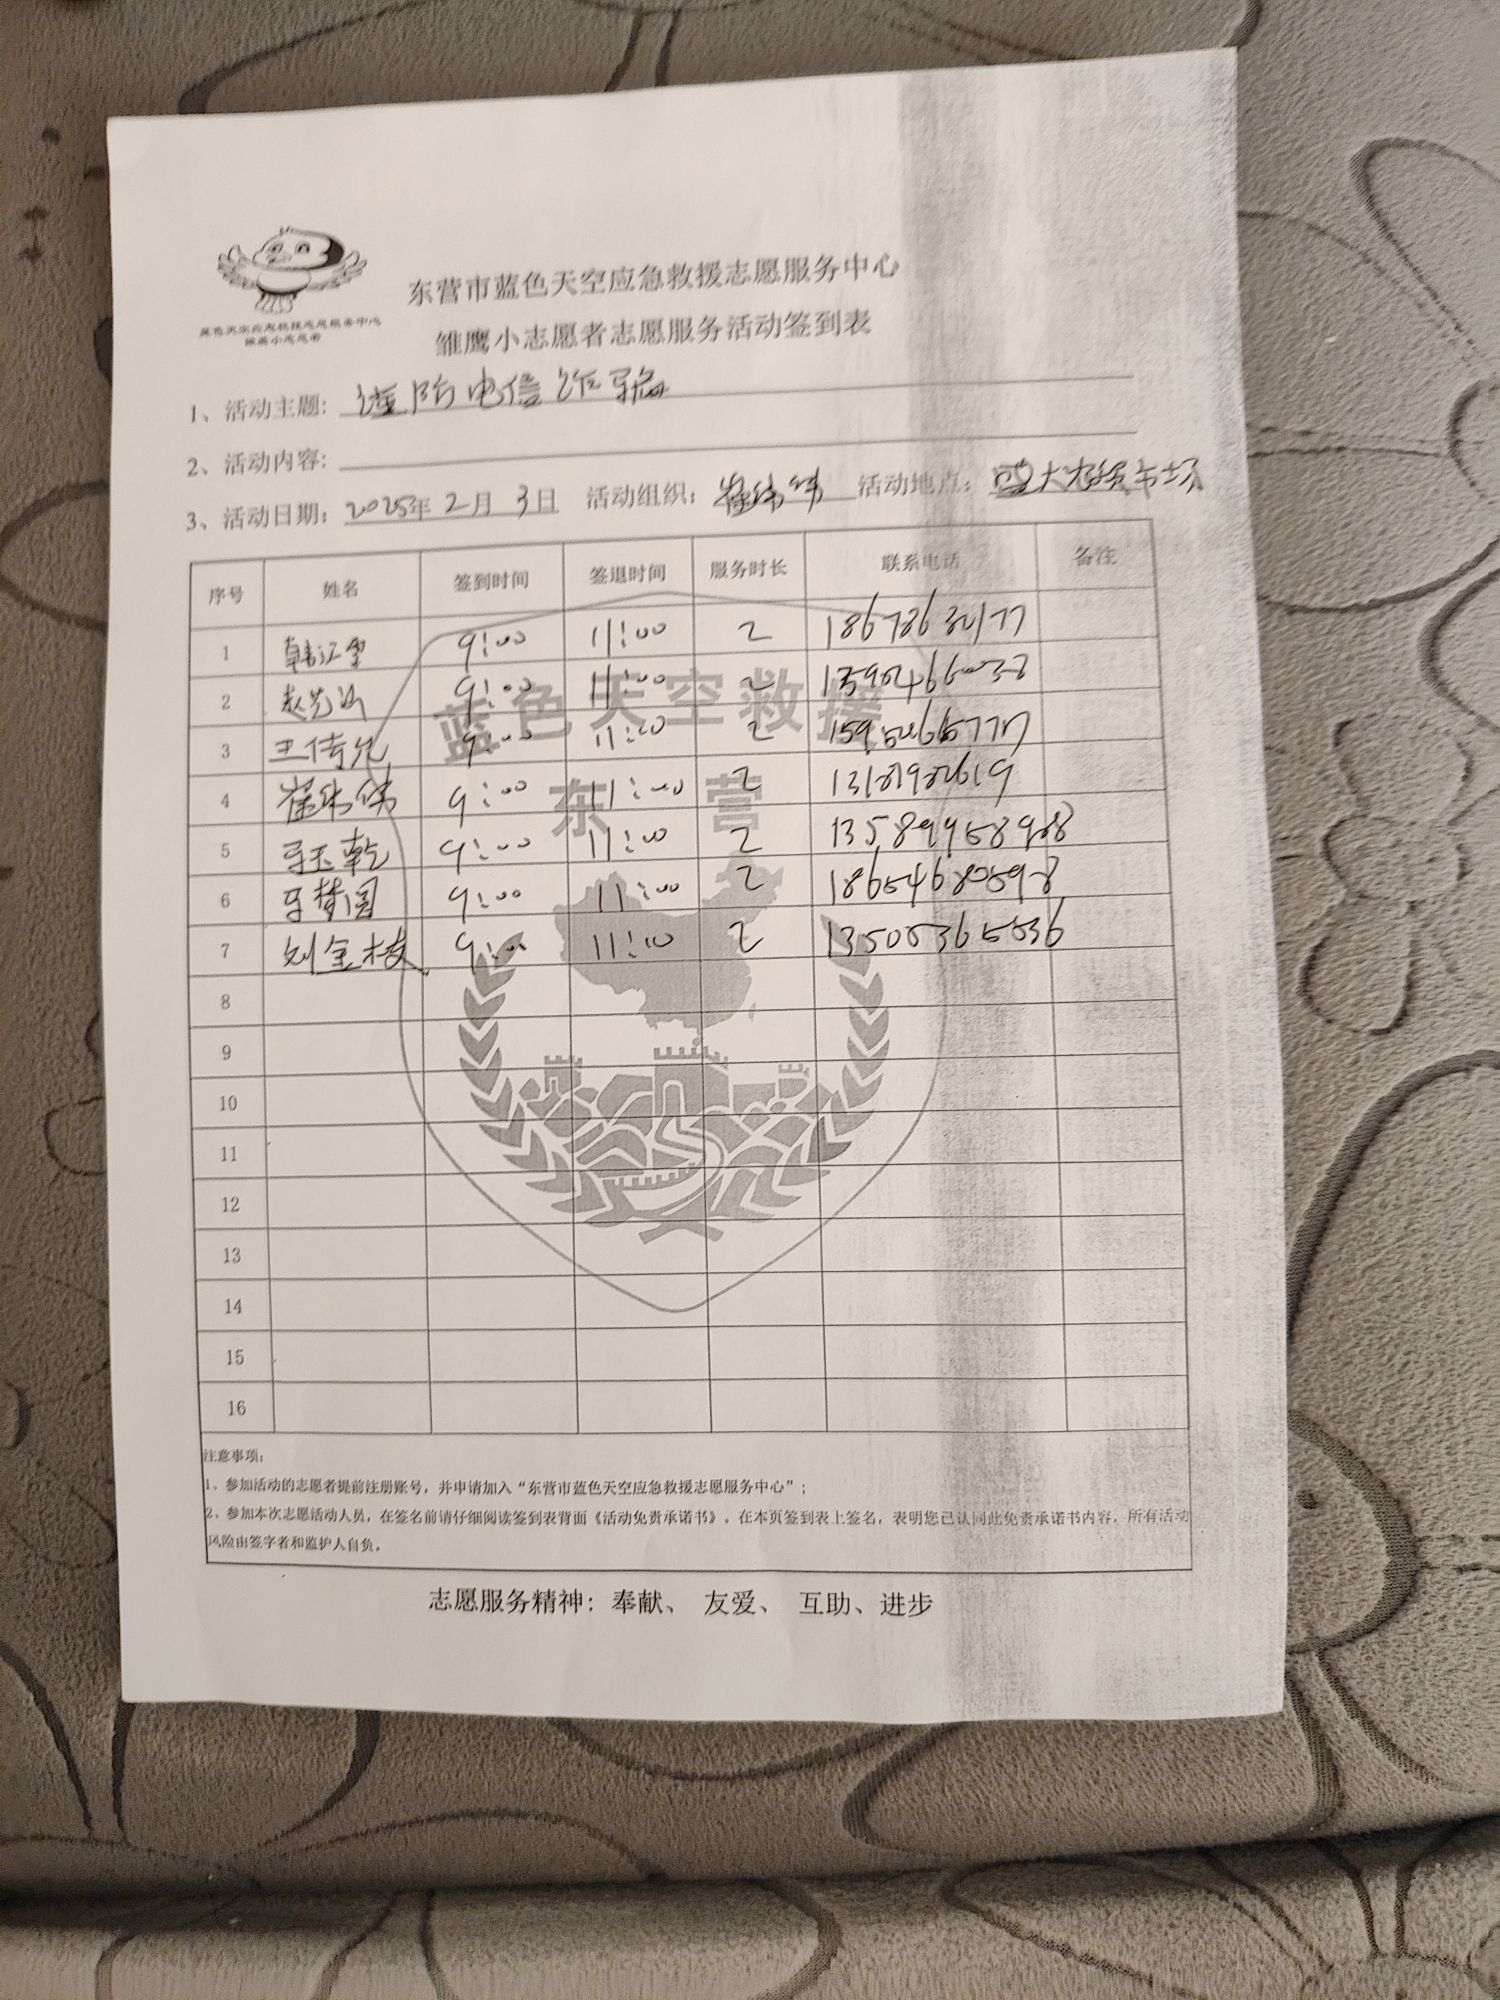 蓝色天空应急救援志愿服务中心
雏鹰小志愿者
东营市蓝色天空应急救援志愿服务中心
雏鹰小志愿者志愿服务活动签到表
1、活动主题: 谨防电信诈骗
2、活动内容:
3、活动日期: 2025年2月3日 活动组织: 崔纬纬 活动地点: 大农贸市场
序号 姓名 签到时间 签退时间 服务时长 联系电话 备注
1 韩江雪 9:00 11:00 2
2 9:00 11:00 2
3 王传允 9:00 11:00 2
4 崔纬纬 9:00 11:00 2
5 玉乾 9:00 11:00 2
6 梦圆 9:00 11:00 2
7 刘金枝 9:00 11:00 2 13505365536
8
9
10
11
12
13
14
15
16
蓝色天空救援
东营
注意事项:
1、参加活动的志愿者提前注册账号，并申请加入“东营市蓝色天空应急救援志愿服务中心”;
2、参加本次志愿活动人员，在签名前请仔细阅读签到表背面《活动免责承诺书》。在本页签到表上签名，表明您已认同此免责承诺书内容，所有活动
风险由签字者和监护人自负。
志愿服务精神: 奉献、 友爱、 互助、进步